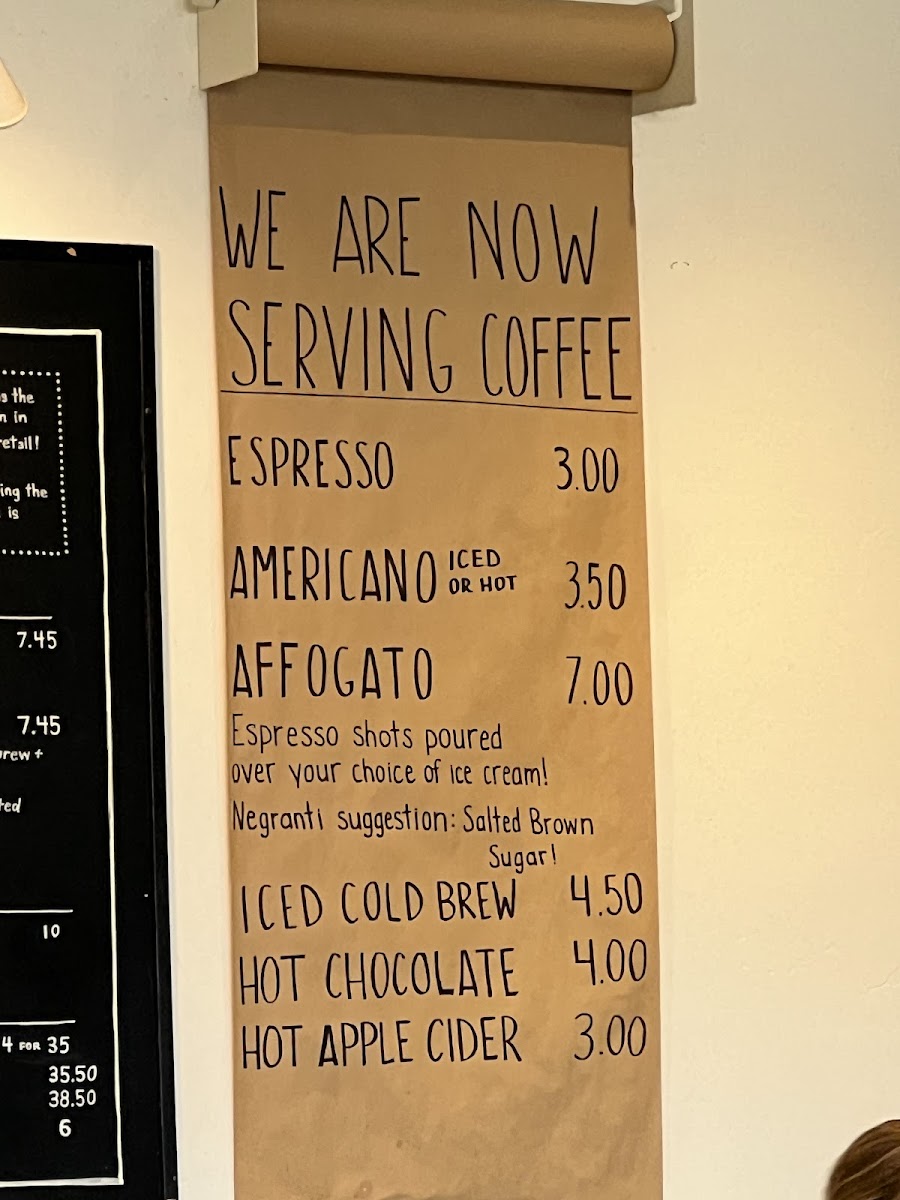 WE ARE NOW
SERVING COFFEE
ESPRESSO 3.00
AMERICANO ICED OR HOT 3.50
AFFOGATO 7.00
Espresso shots poured
over your choice of ice cream!
Negranti suggestion: Salted Brown
Sugar!
ICED COLD BREW 4.50
HOT CHOCOLATE 4.00
HOT APPLE CIDER 3.00
the
in
retail!
the
is
7.45
7.45
+
10
4 FOR 35
35.50
38.50
6